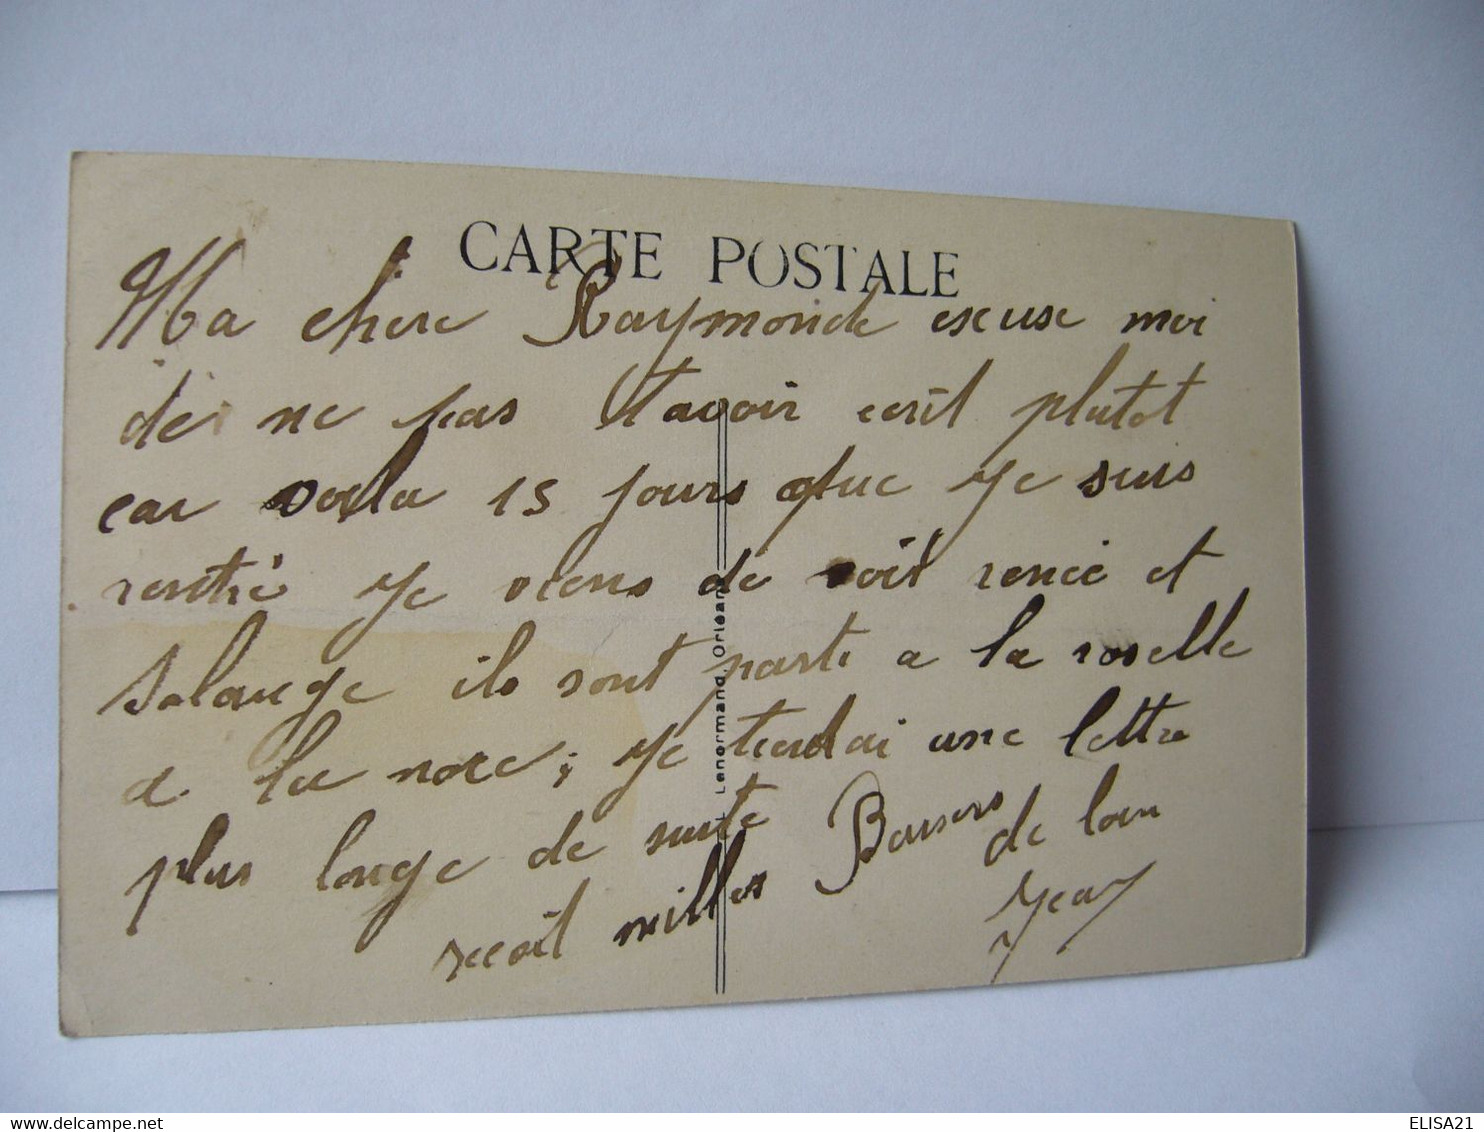 CARTE POSTALE
Ma chere Raymonde excuse moi
de ne pas t'avoir ecrit plutot
car voila 15 jours que je suis
rentré je viens de voir renée et
solange ils sont parti a la roselle
a la noce, je tendai une lettre
plus longe de suite
recoit milles Baisers
de loin
Jean
Lenormand, Orléans
ELISA21
delcampe.net